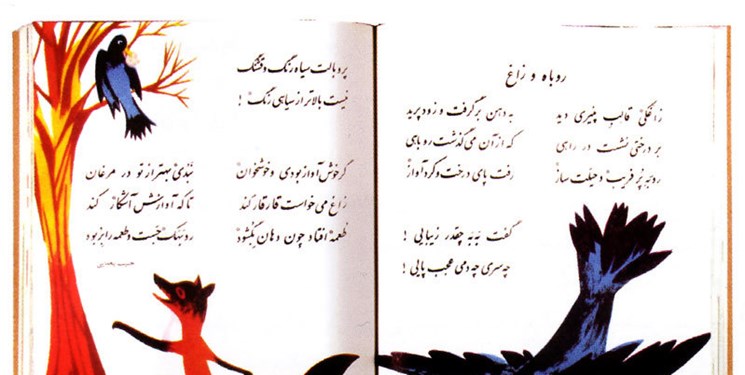 روباه و زاغ
زاغکی قالب پنیری دید به دهن برگرفت و زود پرید
بر درختی نشست در راهی که از آن می‌گذشت روباهی
روبه پر فریب و حیلت ساز رفت پای درخت و کرد آواز
گفت به‌به چقدر زیبایی !
چه سری چه دمی عجب پایی !
پر و بالت سیاه رنگ و قشنگ
نیست بالاتر از سیاهی رنگ !
گر خوش آواز بودی و خوشخوان نبدی بهتر از تو در مرغان
زاغ می‌خواست قار قار کند تا که آوازش آشکار کند
طعمه افتاد چون دهان بگشود روبهک جست و طعمه را بربود
حبیب یغمایی